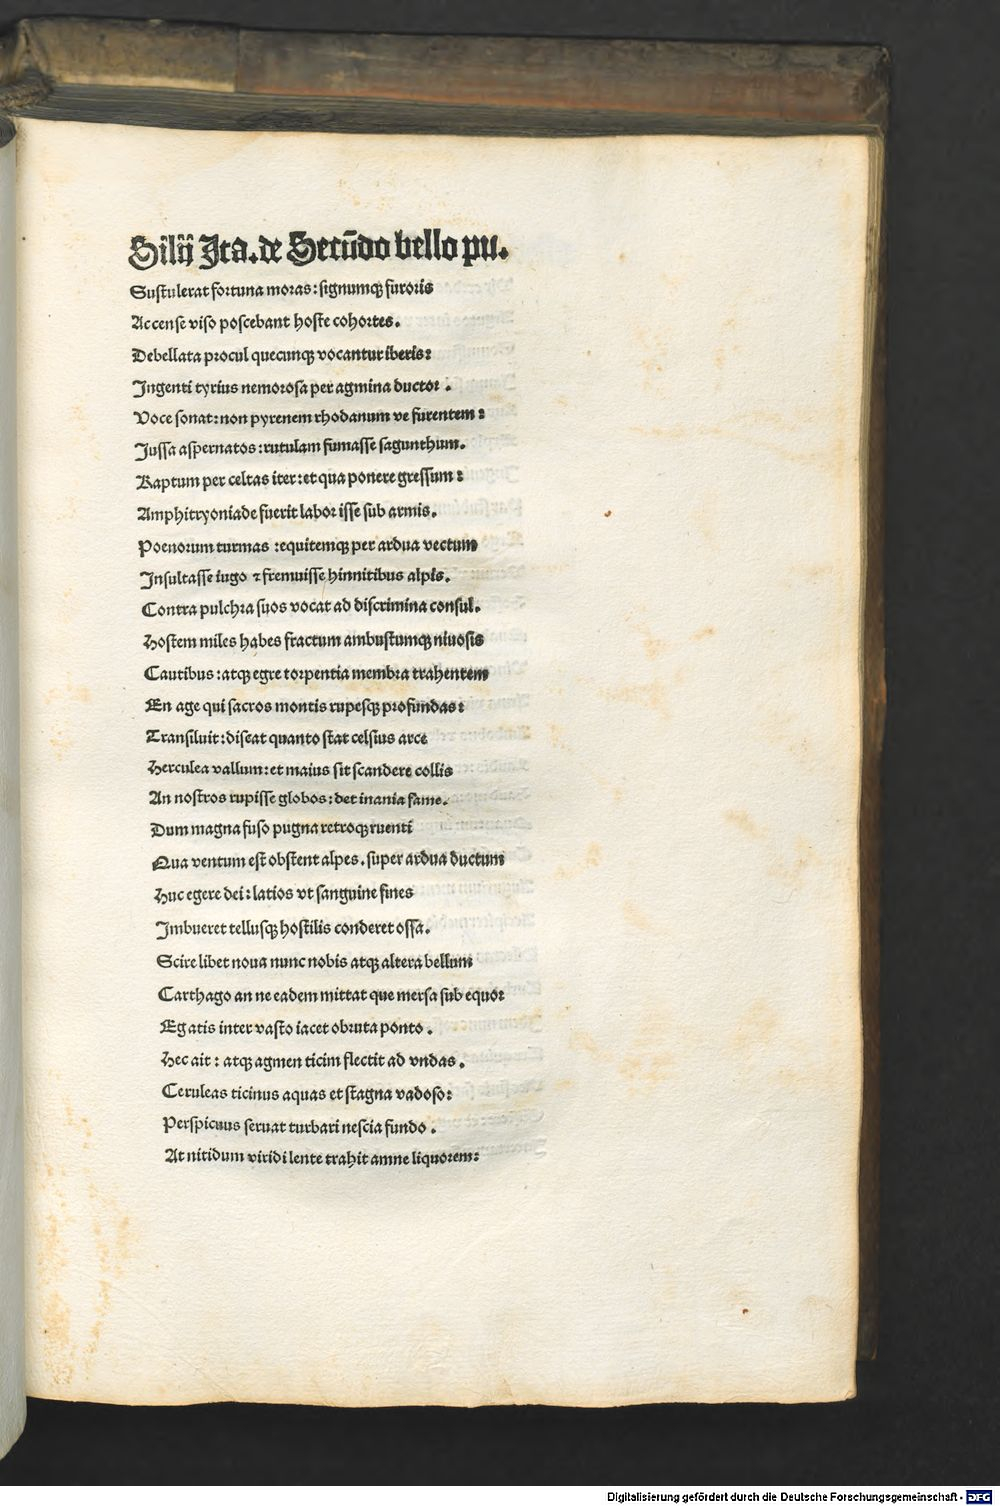 Silij Ita. de Secūdo bello pu.
Sustulerat fortuna moras: signumqꝫ furoris
Accense viso poscebant hoste cohortes.
Debellata procul quecunqꝫ vocantur iberis:
Ingenti tyrius nemorosa per agmina ductor .
Voce sonat: non pyrenem rhodanum ve furentem :
Iussa aspernatos: rutulam fumasse sagunthum.
Raptum per celtas iter: et qua ponere gressum :
Amphitryoniade fuerit labor isse sub armis.
Poenorum turmas : equitemqꝫ per ardua vectum
Insultasse iugo ⁊ fremuisse hinnitibus alpis.
Contra pulchra suos vocat ad discrimina consul.
Hostem miles habes fractum ambustumqꝫ niuosis
Cautibus: atqꝫ egre torpentia membra trahentem
En age qui sacros montis rupesqꝫ profundas:
Transiluit: diseat quanto stat celsius arce
Herculea vallum: et maius sit scandere collis
An nostros rupisse globos: det inania fame.
Dum magna fuso pugna retroqꝫ ruenti
Qua ventum est obstent alpes. super ardua ductum
Huc egere dei: latios vt sanguine fines
Imbueret tellusqꝫ hostilis conderet ossa.
Scire libet noua nunc nobis atqꝫ altera bellum
Carthago an ne eadem mittat que mersa sub equor
Egatis inter vasto iacet obruta ponto .
Hec ait : atqꝫ agmen ticim flectit ad vndas .
Ceruleas ticinus aquas et stagna vadoso:
Perspicuus seruat turbari nescia fundo .
At nitidum viridi lente trahit amne liquorem:
Digitalisierung gefördert durch die Deutsche Forschungsgemeinschaft - DFG